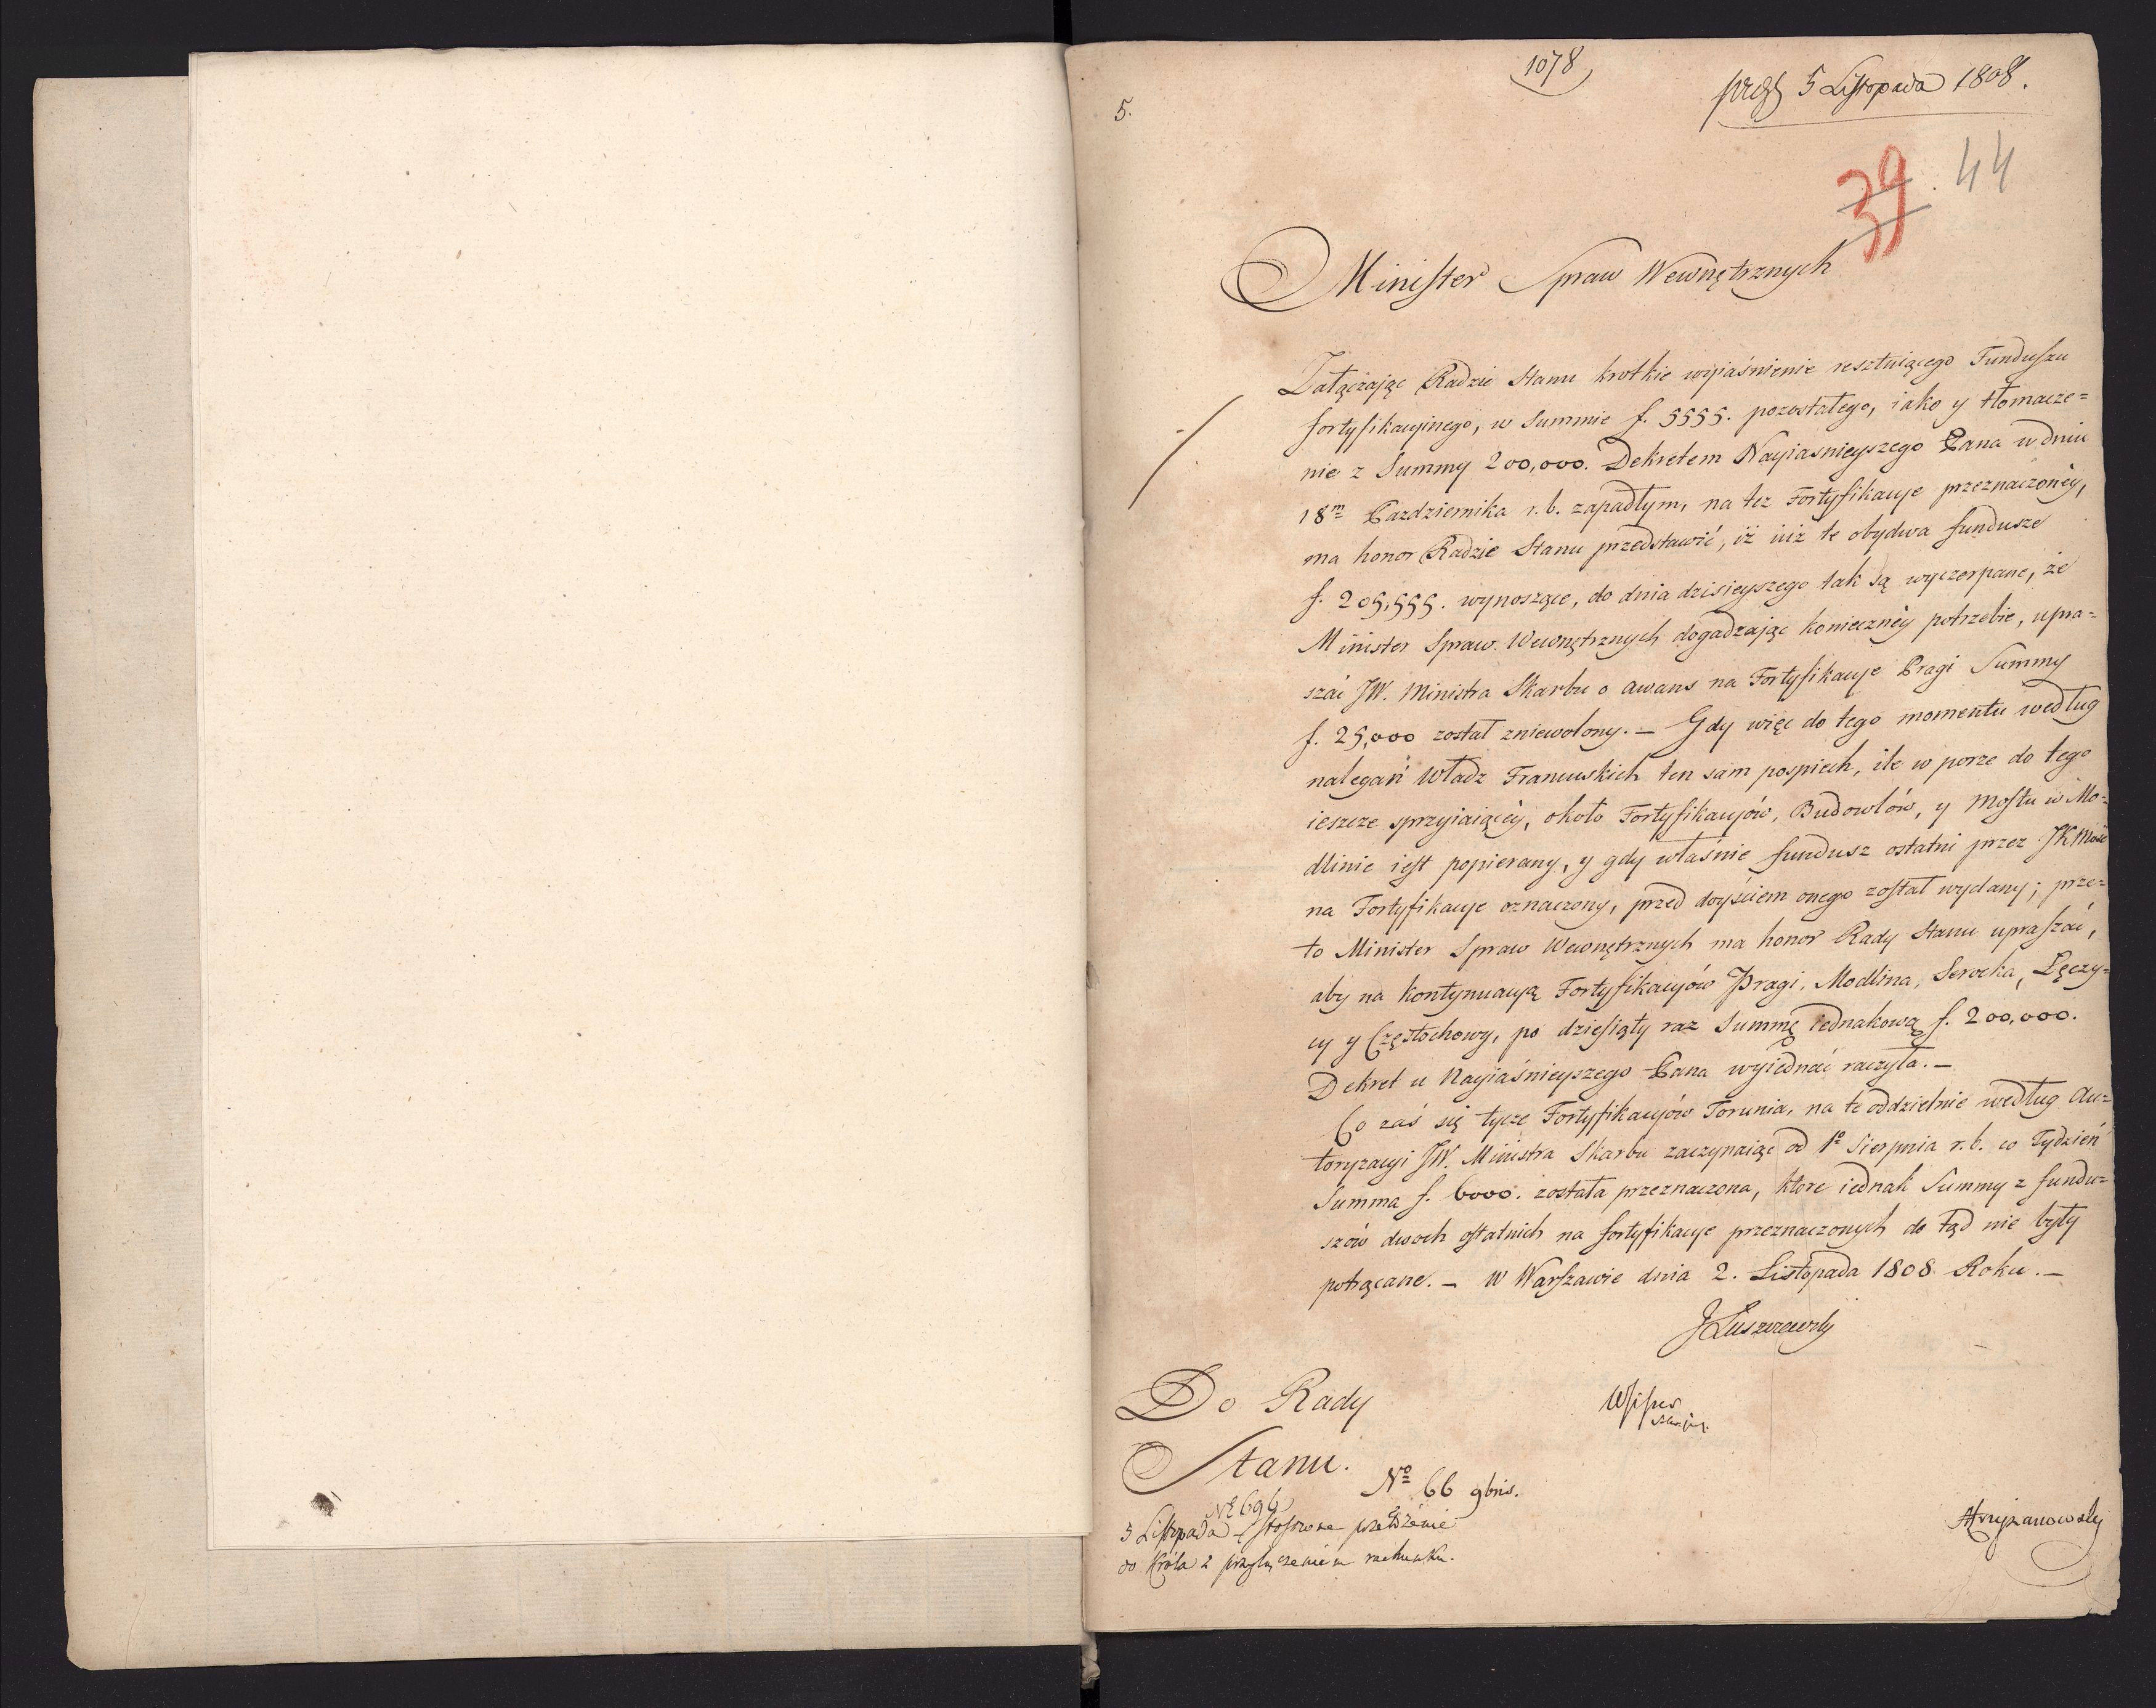 1078
5.
5 Listopada 1808.
39. 44
Minister Spraw Wewnętrznych
Załączając Radzie Stanu krotkie wyiaśnienie resztuiącego Funduszu
fortyfikacyinego, w Summie f. 5555. pozostałego, iako y tłomacze=
nie z Summy 200,000. Dekretem Nayiasnieyszego Pana w dniu
18m Pazdziernika r. b. zapadłym, na tez Fortyfikacye przeznaczoney,
ma honor Radzie Stanu przedstawić, iż iuż te obydwa fundusze
f. 205,555. wynoszące, do dnia dzisieyszego tak są wyczerpane, że
Minister Spraw Wewnętrznych dogadzaiąc konieczney potrzebie, upra=
szać JW. Ministra Skarbu o awans na Fortyfikacye Pragi Summy
f. 25,000 został zniewolony. — Gdy więc do tego momentu według
nalegań Władz Francuskich ten sam pospiech, ile w porze do tego
ieszcze sprzyiaiącey, około Fortyfikacyów, Budowlów, y Mostu w Mo=
dlinie iest popierany, y gdy właśnie fundusz ostatni przez JKMość
na Fortyfikacye oznaczony, przed doyściem onego został wydany; prze=
to Minister Spraw Wewnętrznych ma honor Rady Stanu upraszać,
aby na kontynuacyą Fortyfikacyów Pragi, Modlina, Serocka, Łęczy=
cy y Częstochowy, po dziesiąty raz Summę iednakową f. 200,000.
Dekret u Nayiaśnieyszego Pana wyiednać raczyła. —
Co zaś się tycze Fortyfikacyów Torunia, na te oddzielnie według Au=
toryzacyi JW. Ministra Skarbu zaczynaiąc od 1o Sierpnia r. b. co Tydzień
Summa f. 6000. została przeznaczona, ktore iednak Summy z fundu=
szów dwoch ostatnich na fortyfikacye przeznaczonych do tąd nie były
potrącane. — w Warszawie dnia 2. Listopada 1808 Roku. —
JŁuszczewski
Do Rady
Stanu.
No 66 9bris.
No 696
5 Listopada stosowne przełożenie
do Króla z przyłączeniem rachunku.